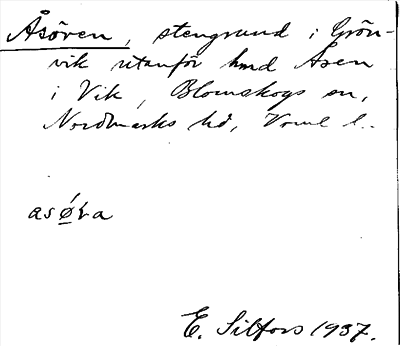 Åsören, stengrund i Grön-
vik utanför hmd Åsen
i Vik, Blomskogs sn,
Nordmarks hd, Vrml l..
asǿra
E. Silfors 1937.